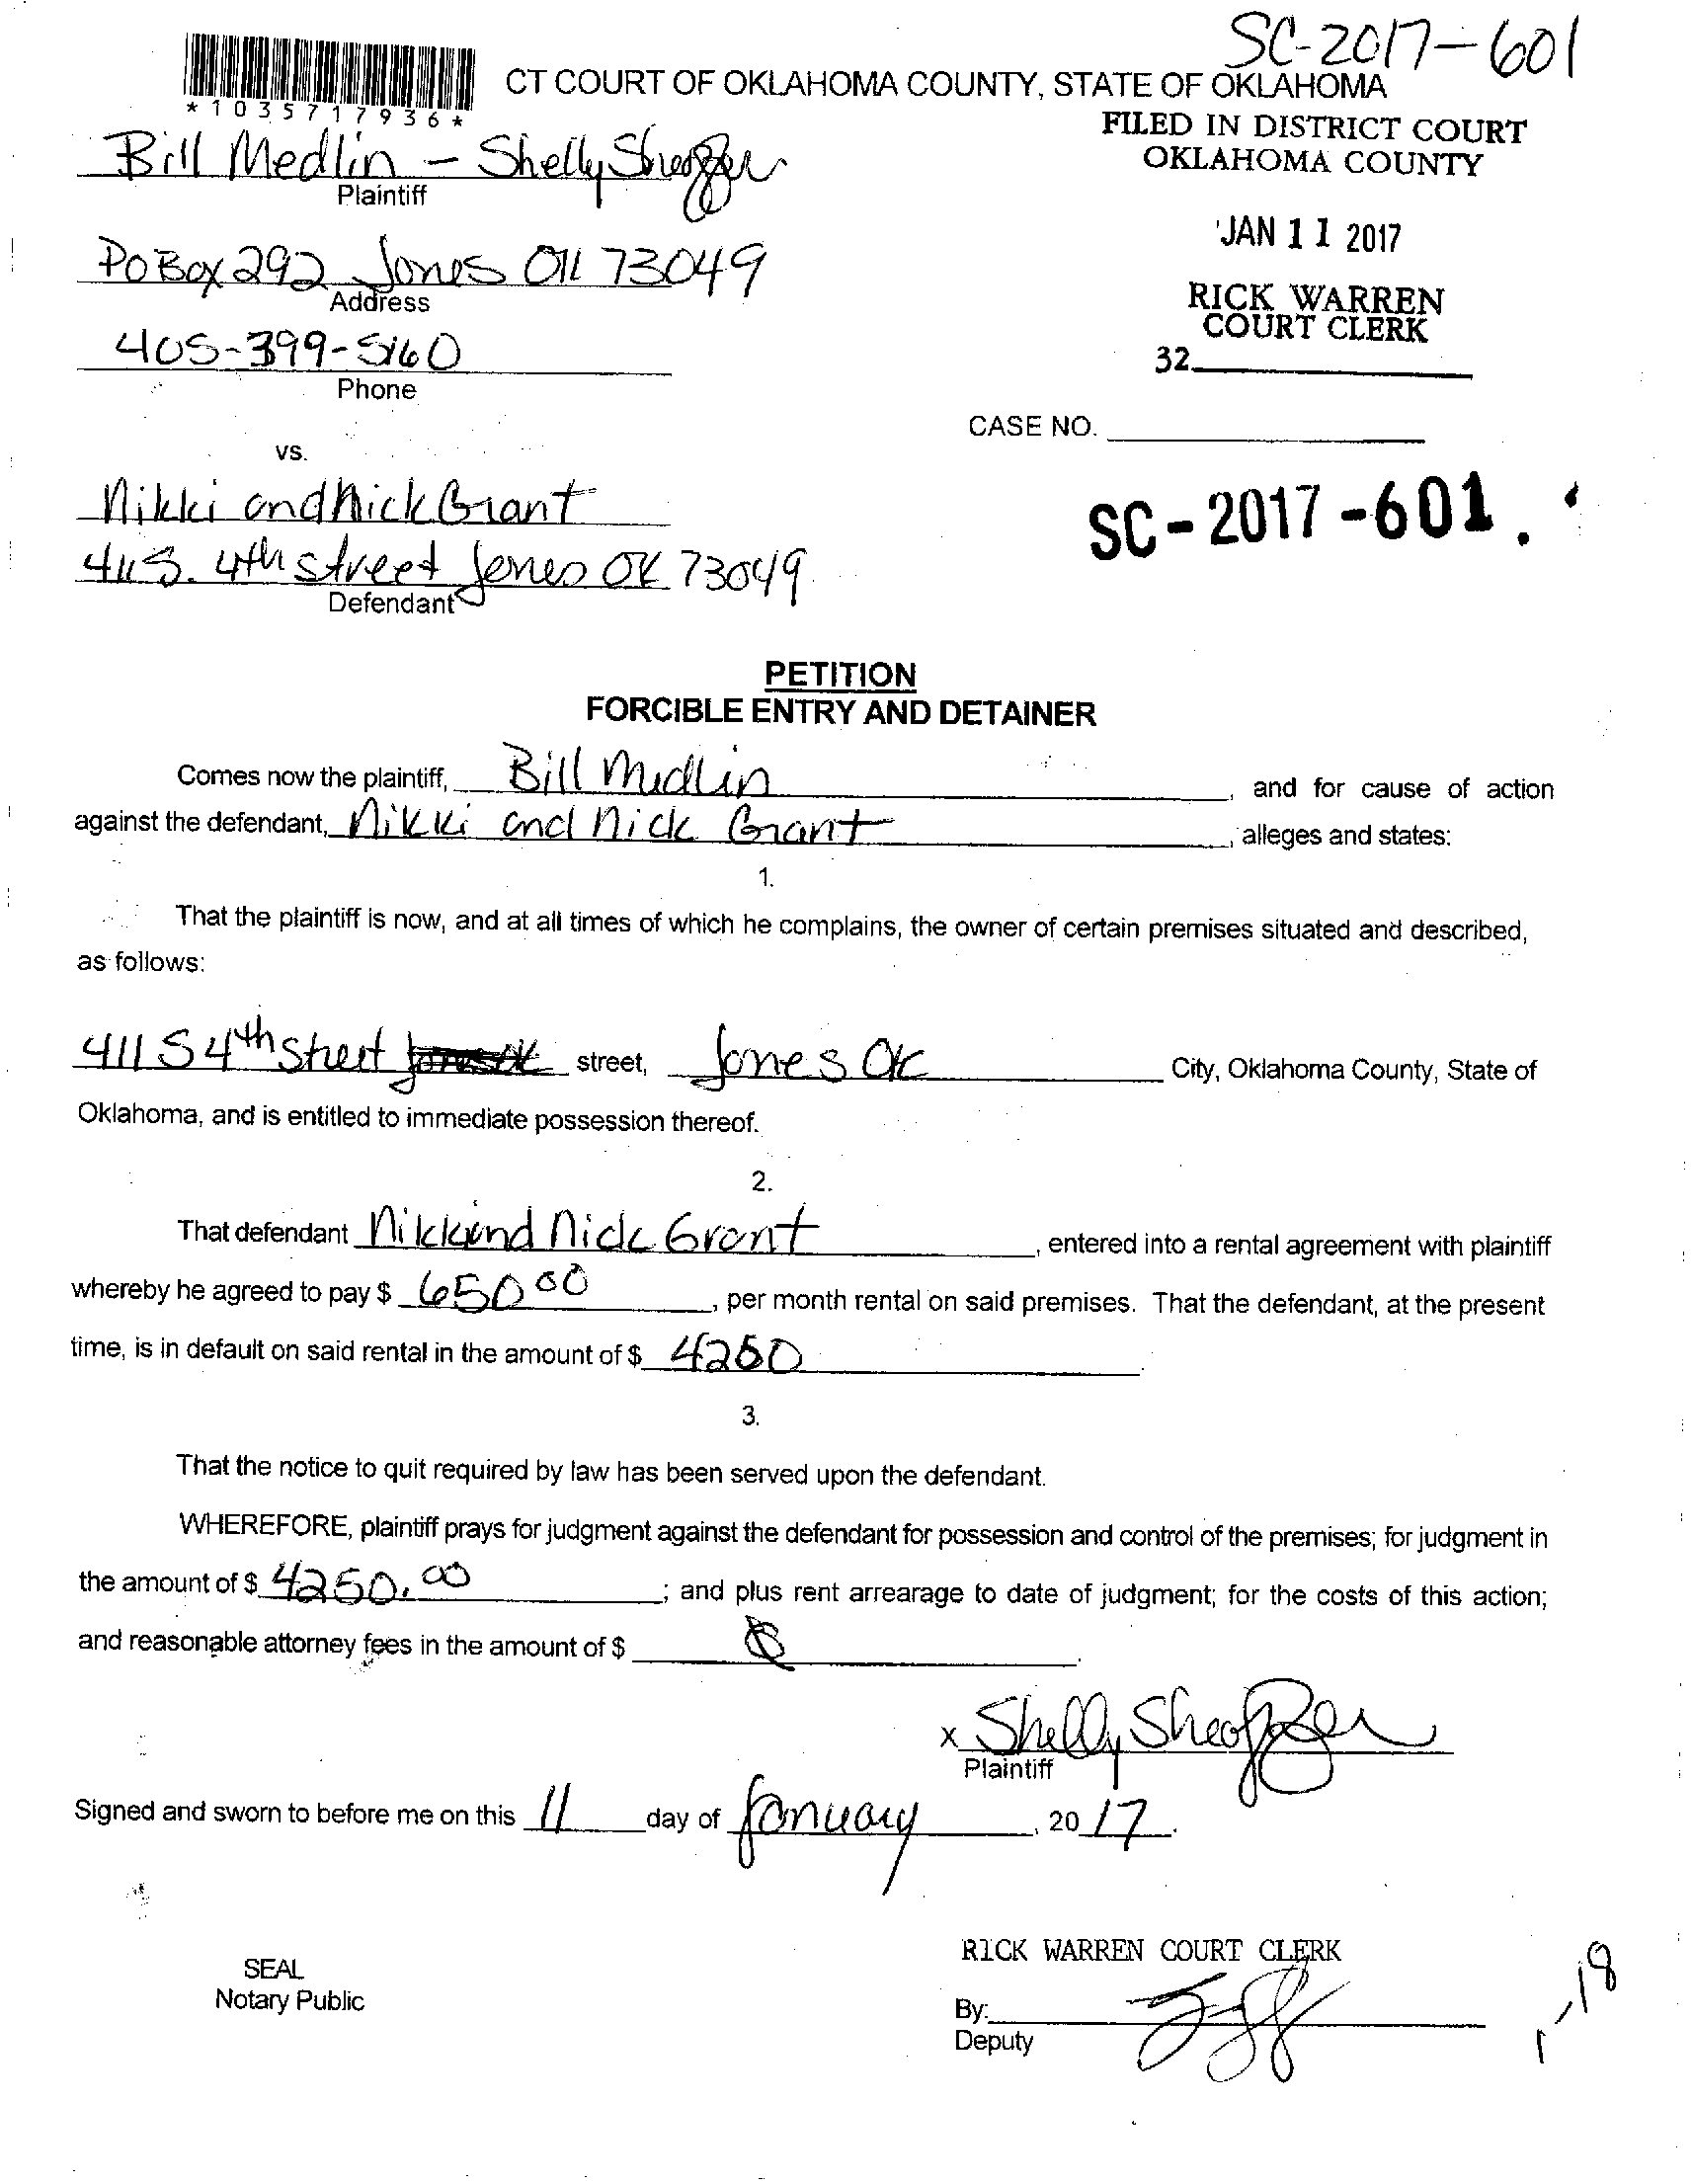 SC-2017-601
CT COURT OF OKLAHOMA COUNTY, STATE OF OKLAHOMA
*1035717936*
FILED IN DISTRICT COURT
OKLAHOMA COUNTY
Bill Medlin - Shelly
Plaintiff
JAN 11 2017
PO Box 292 Jones OK 73049
Address
RICK WARREN
COURT CLERK
405-399-5160
32
Phone
CASE NO.
vs.
Nikki and Nick Grant
SC-2017-601.
411 S. 4th street Jones OK 73049
Defendant
PETITION
FORCIBLE ENTRY AND DETAINER
Comes now the plaintiff, Bill Medlin, and for cause of action
against the defendant, Nikki and Nick Grant, alleges and states:
1.
That the plaintiff is now, and at all times of which he complains, the owner of certain premises situated and described,
as follows:
411 S 4th Street street, Jones OK City, Oklahoma County, State of
Oklahoma, and is entitled to immediate possession thereof.
2.
That defendant Nikki and Nick Grant, entered into a rental agreement with plaintiff
whereby he agreed to pay $ 650 00, per month rental on said premises. That the defendant, at the present
time, is in default on said rental in the amount of $ 4250.
3.
That the notice to quit required by law has been served upon the defendant.
WHEREFORE, plaintiff prays for judgment against the defendant for possession and control of the premises; for judgment in
the amount of $ 4250.00; and plus rent arrearage to date of judgment; for the costs of this action;
and reasonable attorney fees in the amount of $
x Shelly
Plaintiff
Signed and sworn to before me on this 11 day of January, 2017.
RICK WARREN COURT CLERK
SEAL
Notary Public
By:
Deputy
1-18